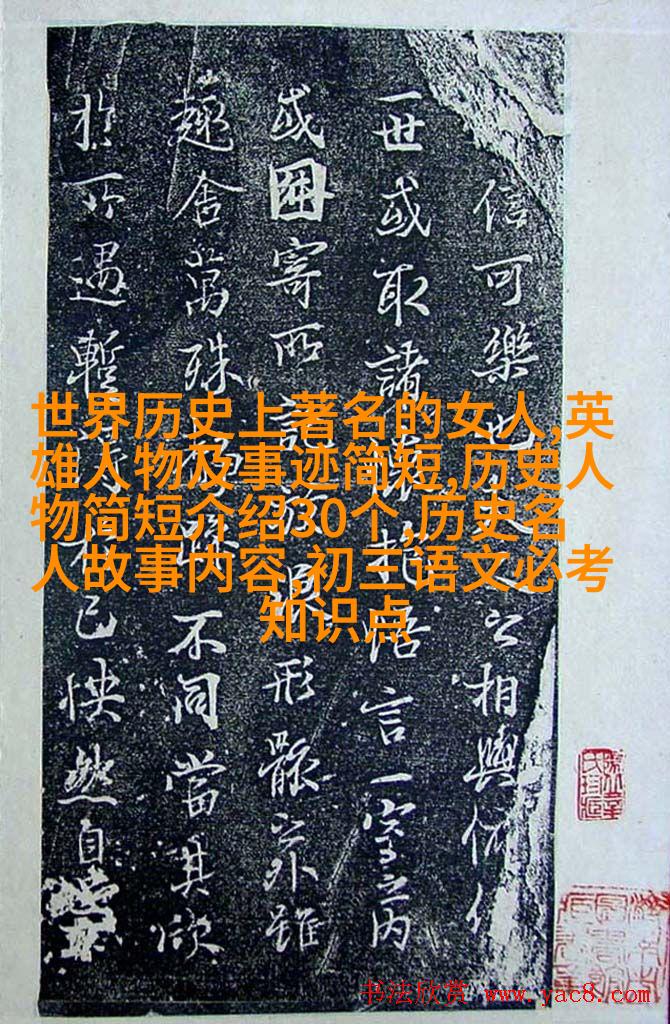 信可樂也夫人之相與俯仰
一世或取諸懷抱悟言一室之內
或因寄所託放浪形骸之外雖
趣舍萬殊靜躁不同當其欣
於所遇暫得於己怏然自
世界历史上著名的女人,英
雄人物及事迹简短,历史人
物简短介绍30个,历史名
人故事内容,初三语文必考
知识点
书法欣赏 www.yac8.com